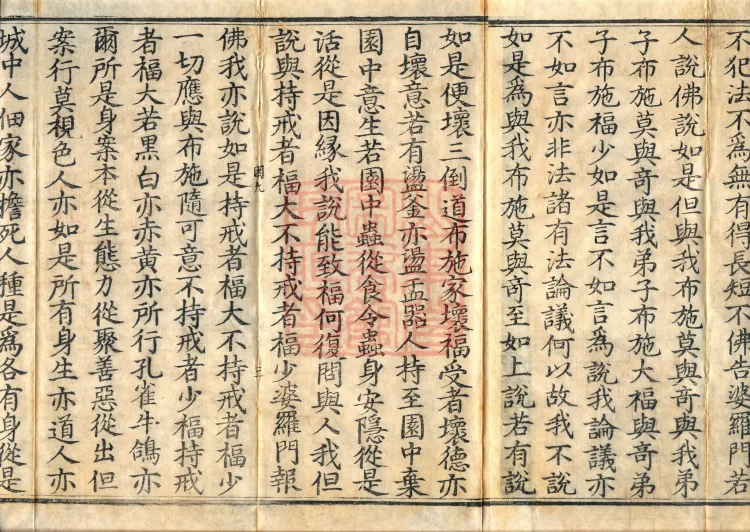 不犯法不為無有得長短不佛告婆羅門若
人說佛說如是但與我布施莫與竒與我弟
子布施莫與竒與我弟子布施大福與竒弟
子布施福少如是言不如言為說我論議亦
不如言亦非法諸有法論議何以故我不說
如是為與我布施莫與竒至如上說若有說
如是便壞三倒道布施家壞福受者壞德亦
自壞意若有盪釜亦盪盂器人持至園中棄
園中意生若園中蟲從食令蟲身安隱從是
活從是因緣我說能致福何復問與人我但
說與持戒者福大不持戒者福少婆羅門報
佛我亦說如是持戒者福大不持戒者福少
一切應與布施隨可意不持戒者少福持戒
者福大若黑白亦赤黃亦所行孔雀牛鴿亦
爾所是身案本從生態力從聚善惡從出但
案行莫視色人亦如是所有身生亦道人亦
城中人佃家亦擔死人種是為各有身從是